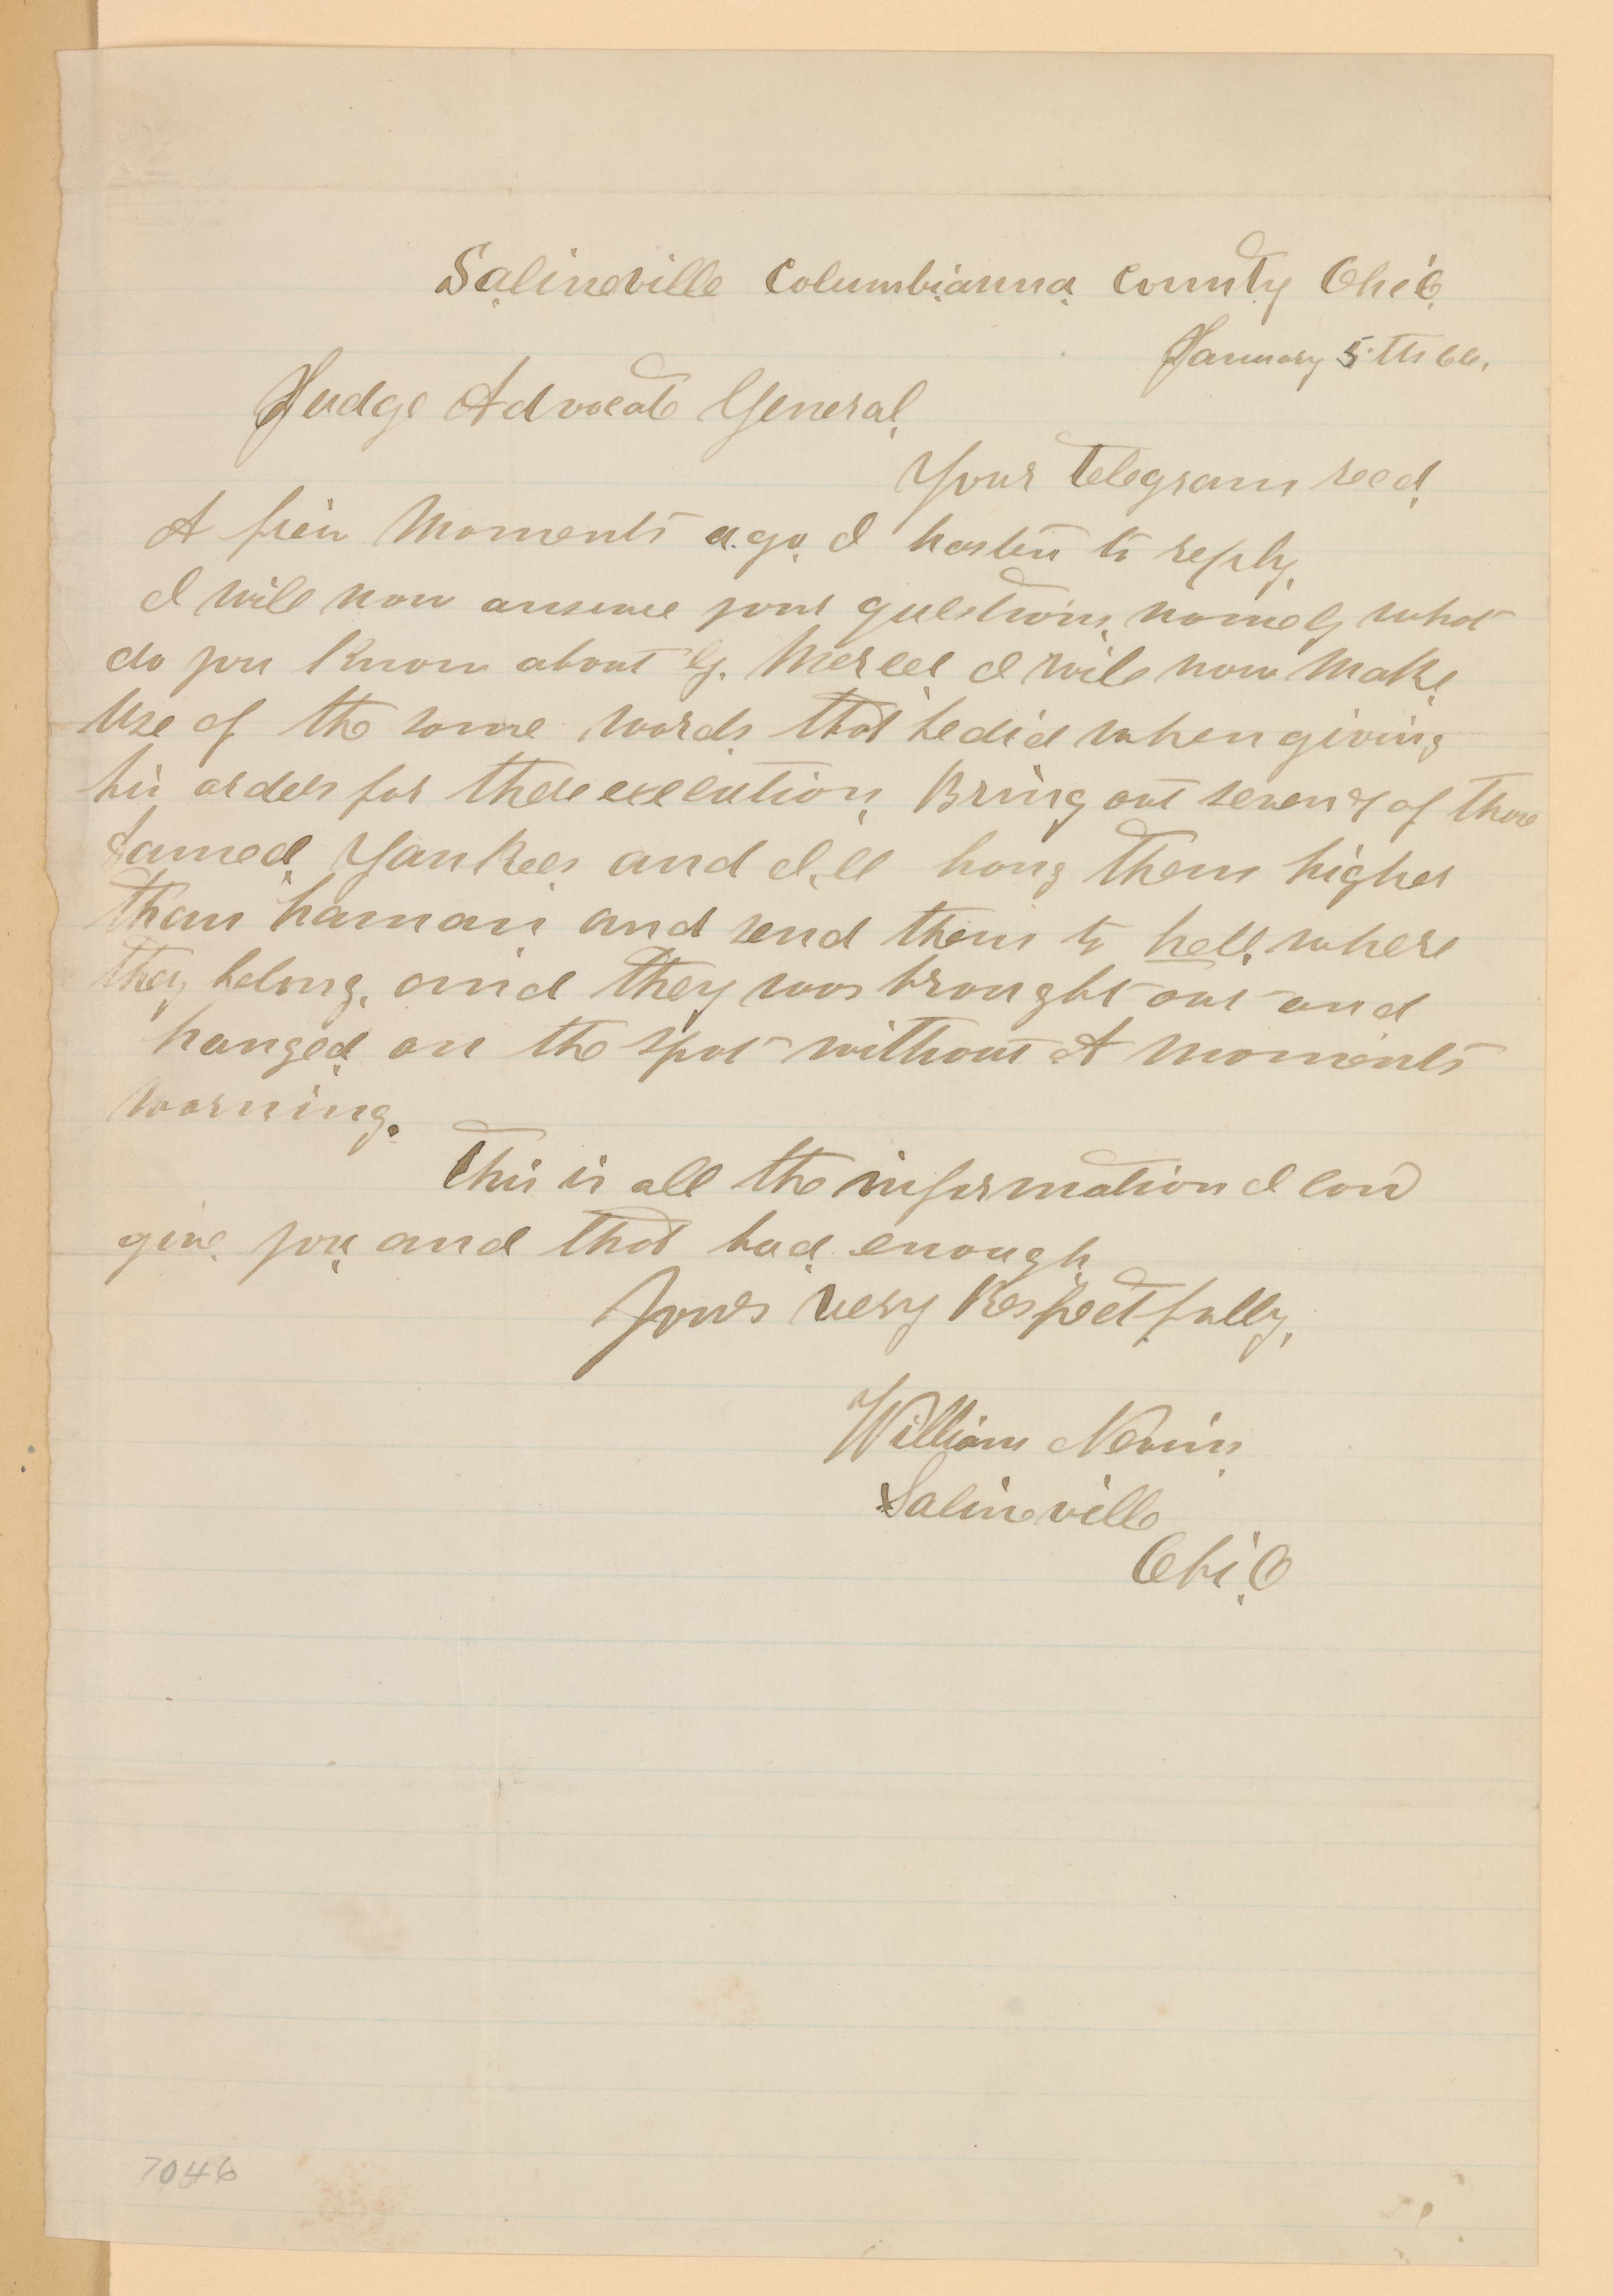 Salineville Columbianna County Ohio
January 5th 66.
Judge Advocate General,
Your telegram recd.
A few Moments ago. I hasten to reply,
I will now answer your questions, namely what
do you Know about G. Mercer I will now Make
Use of the same words that he did when giving
his orders for there execution, Bring out seven of those
damed Yankees and I,ll hang them higher
than haman and send them to hell, where
they belong, and they was brought out and
hanged on the spot without A moments
warning.
This is all the information I can
give you and that bad enough
Yours very Respectfully,
William Nevin
Salineville
Ohio
7046